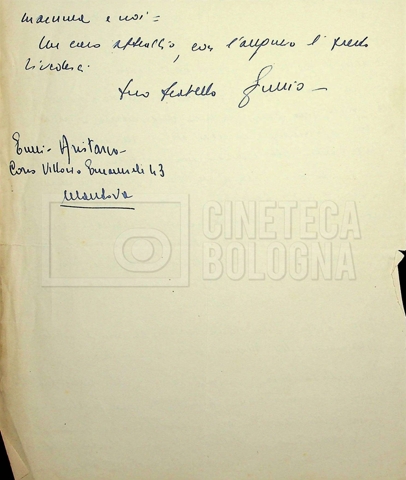 mamma e noi =
Un caro abbraccio, con l'augurio di presto
rivederci.
tuo fratello Ennio —
Ennio Aristarco
Corso Vittorio Emanuele 43
Mantova
CINETECA
BOLOGNA